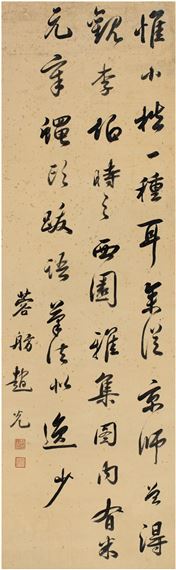 惟小楷一種耳從京師得
觀李伯時之西園雅集圖內有米
元章跋語筆法似逸少
蓉舫趙光